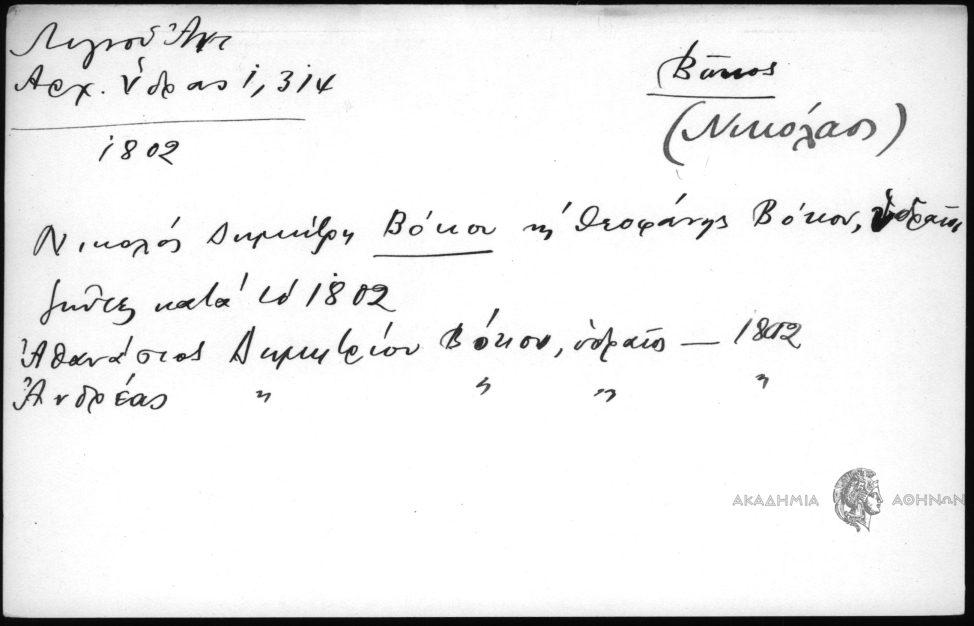 Λιγνοῦ Ἀντ
Ἀρχ. Ὕδρας 1, 314
1802
Βῶκος
(Νικόλαος)
Νικολός Δημήτρη Βόκου κ' Θεοφάνης Βόκου, ὑδραῖοι
κατά τό 1802
Ἀθανάσιος Δημητρίου Βόκου, ὑδραῖος — 1802
Ἀνδρέας " " " "
ΑΚΑΔΗΜΙΑ ΑΘΗΝΩΝ